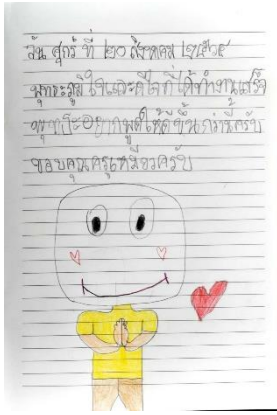 วัน ศุกร์ ที่ ๒๐ สิงหาคม ๒๕๖๔
พุทธะภูมิใจและดีใจที่ได้ทำงานเสร็จ
พุทธะอยากพูดให้ดีขึ้นกว่านี้ครับ
ขอบคุณครูเหมียวครับ